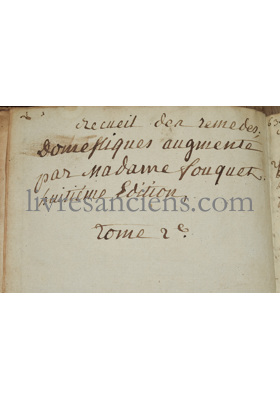 Recueil des remedes,
Domestiques augmenté
par Madame fouquet
huitiéme Edition,
livresanciens.com
tome 2e.